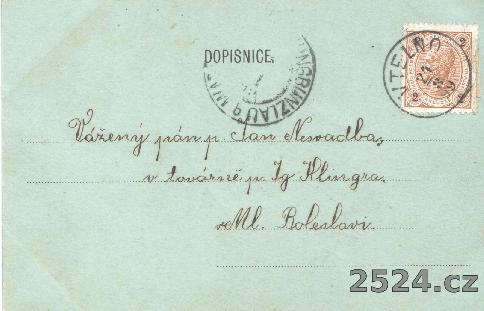 DOPISNICE.
JUNGBUNZLAU
VTELNO
Vážený pán p. Jan Neswadba,
v továrně p. Ig Klingra
v Ml. Boleslavi.
2524.cz